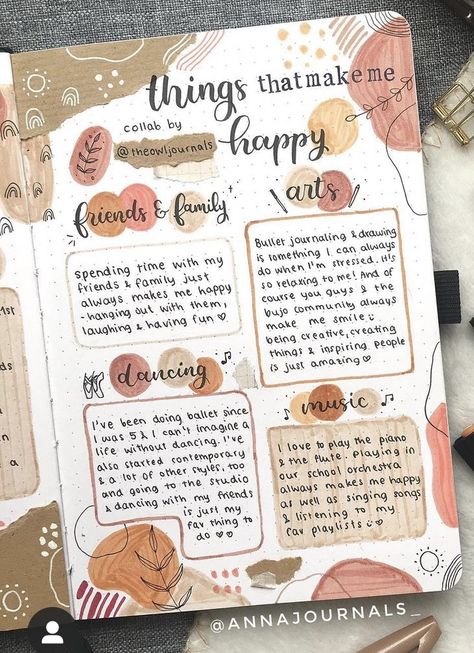 things that make me
happy
collab by
@theowljournals
friends & family
spending time with my
friends & family just
always makes me happy
- hanging out with them,
laughing & having fun ♡♡
arts
Bullet journaling & drawing
is something I can always
do when I'm stressed. It's
so relaxing to me! And of
course you guys & the
bujo community always
make me smile :)
being creative, creating
things & inspiring people
is just amazing ♡
dancing
I've been doing ballet since
I was 5 & I can't imagine a
life without dancing. I've
also started contemporary
& a lot of other styles, too
and going to the studio
& dancing with my friends
is just my
fav thing to
do ♡♡
music
I love to play the piano
& the flute. Playing in
our school orchestra
always makes me happy
as well as singing songs
& listening to my
fav playlists :) ♡
1st
s
a
@ANNAJOURNALS_